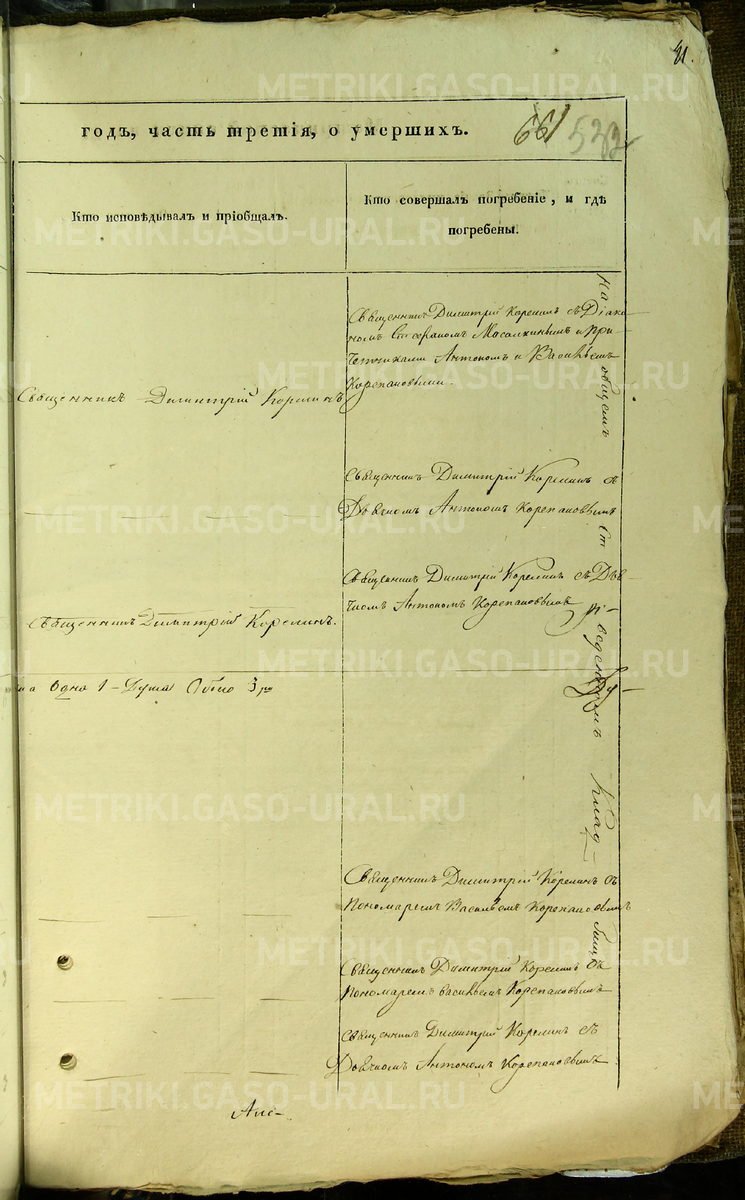 41.
годъ, часть третія, о умершихъ.
661 532
Кто исповѣдывалъ и пріобщалъ.
Кто совершалъ погребеніе, и гдѣ
погребены.
Священникъ Димитрій Корелинъ съ Діако-
номъ Масалкинымъ и при-
четниками Антономъ и Васильемъ
Корепановыми.
Священникъ Димитрій Корелинъ
Священникъ Димитрій Корелинъ съ
Дьячкомъ Антономъ Корепановымъ
Священникъ Димитрій Корелинъ съ Дья-
чкомъ Антономъ Корепановымъ
Священникъ Димитрій Корелинъ.
одна 1 – Душа Обоего 3
Священникъ Димитрій Корелинъ съ
Пономаремъ Васильемъ Корепановымъ
Священникъ Димитрій Корелинъ съ
Пономаремъ Васильемъ Корепановымъ
Священникъ Димитрій Корелинъ съ
Дьячкомъ Антономъ Корепановымъ
На общемъ от-
веденномъ Клад-
бищѣ
METRIKI.GASO-URAL.RU